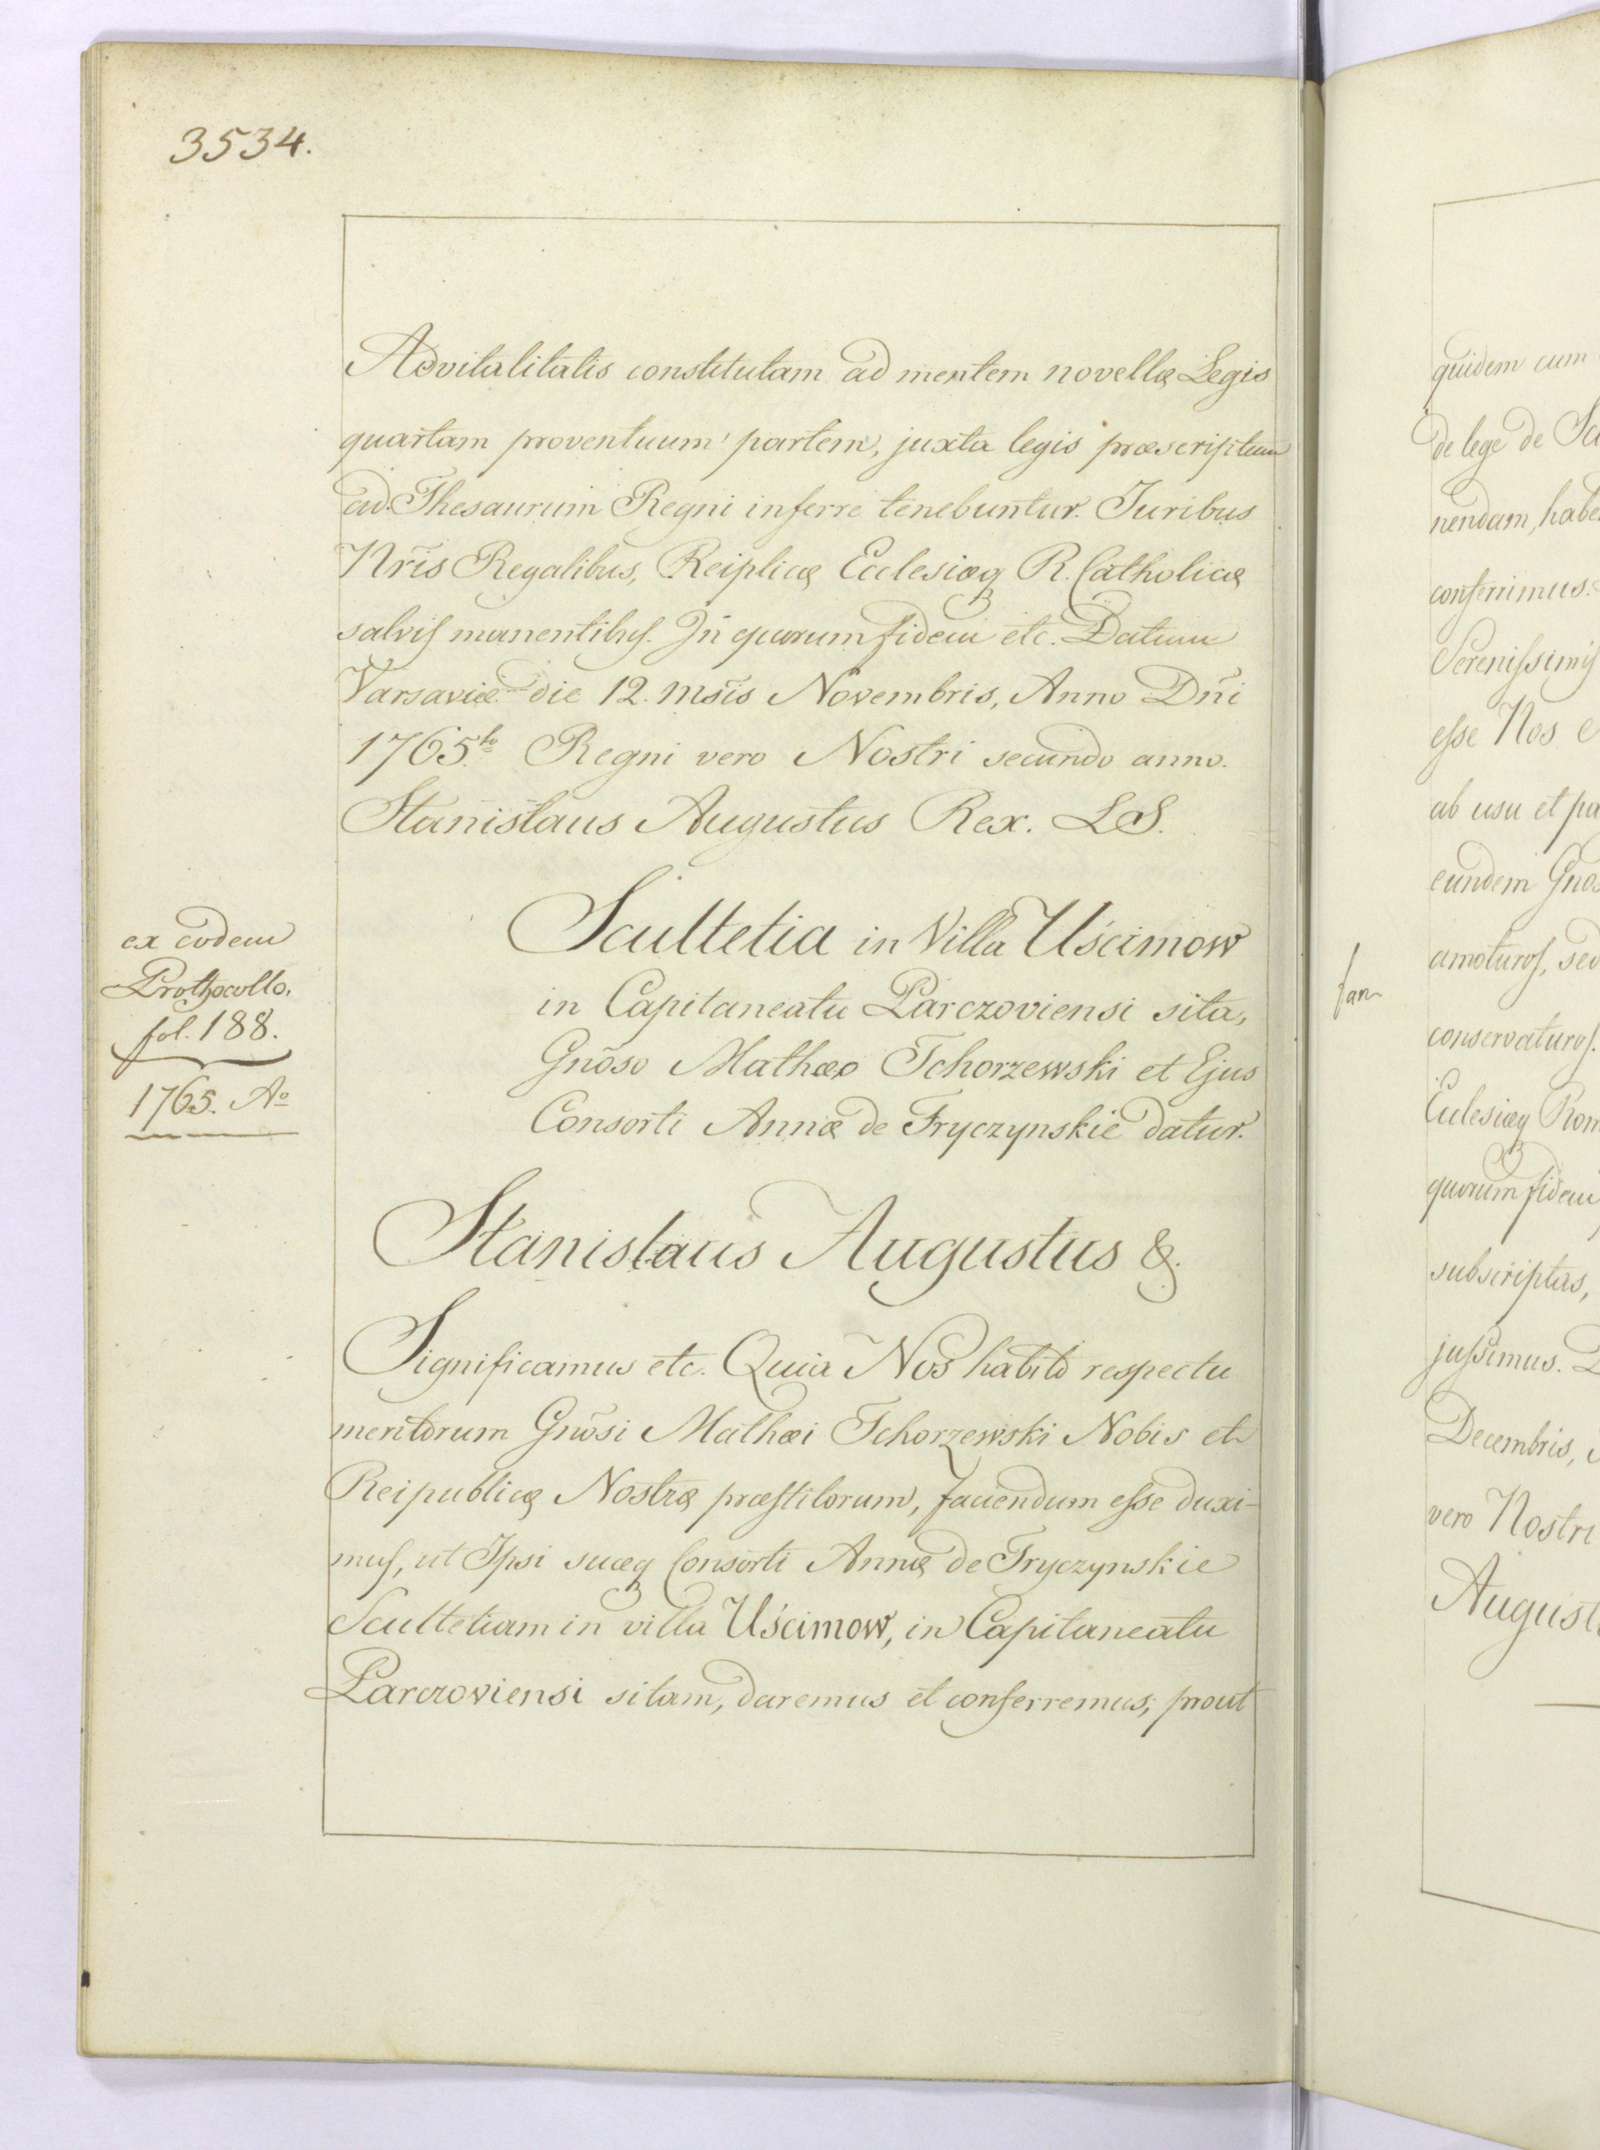 3534.
Advitalitatis constitutam ad mentem novellæ Legis
quartam proventuum partem, juxta legis præscriptum
ad Thesaurum Regni inferre tenebuntur. Juribus
Nr̃is Regalibus, Reiplicæ Ecclesiæq R. Catholicæ
salvis manentibus. In quorum fidem etc. Datum
Varsaviæ die 12. msis Novembris, Anno Dñi
1765.to Regni vero Nostri secundo anno.
Stanislaus Augustus Rex. LS.
ex eodem
Prothocollo,
fol. 188.
1765. Ao
Scultetia in Villa Uścimow
in Capitaneatu Parczoviensi sita,
Gnõso Mathæo Tchorzewski et Ejus
Consorti Annæ de Tryczynskie datur.
Stanislaus Augustus &.
Significamus etc. Quia Nos habito respectu
meritorum Gnõsi Mathæi Tchorzewski Nobis et
Reipublicæ Nostræ præstitorum, faciendum esse duxi-
mus, ut Ipsi suæq Consorti Annæ de Tryczynskie
Scultetiam in villa Uścimow, in Capitaneatu
Parczoviensi sitam, daremus et conferremus; prout
quidem cum
de lege de
nendam,
conferrimus.
Serenissimis
esse Nos
ab usu et
eundem
amoturos,
conservaturos.
Ecclesiæq
quorum fidem
subscriptas,
jussimus.
Decembris,
vero Nostri